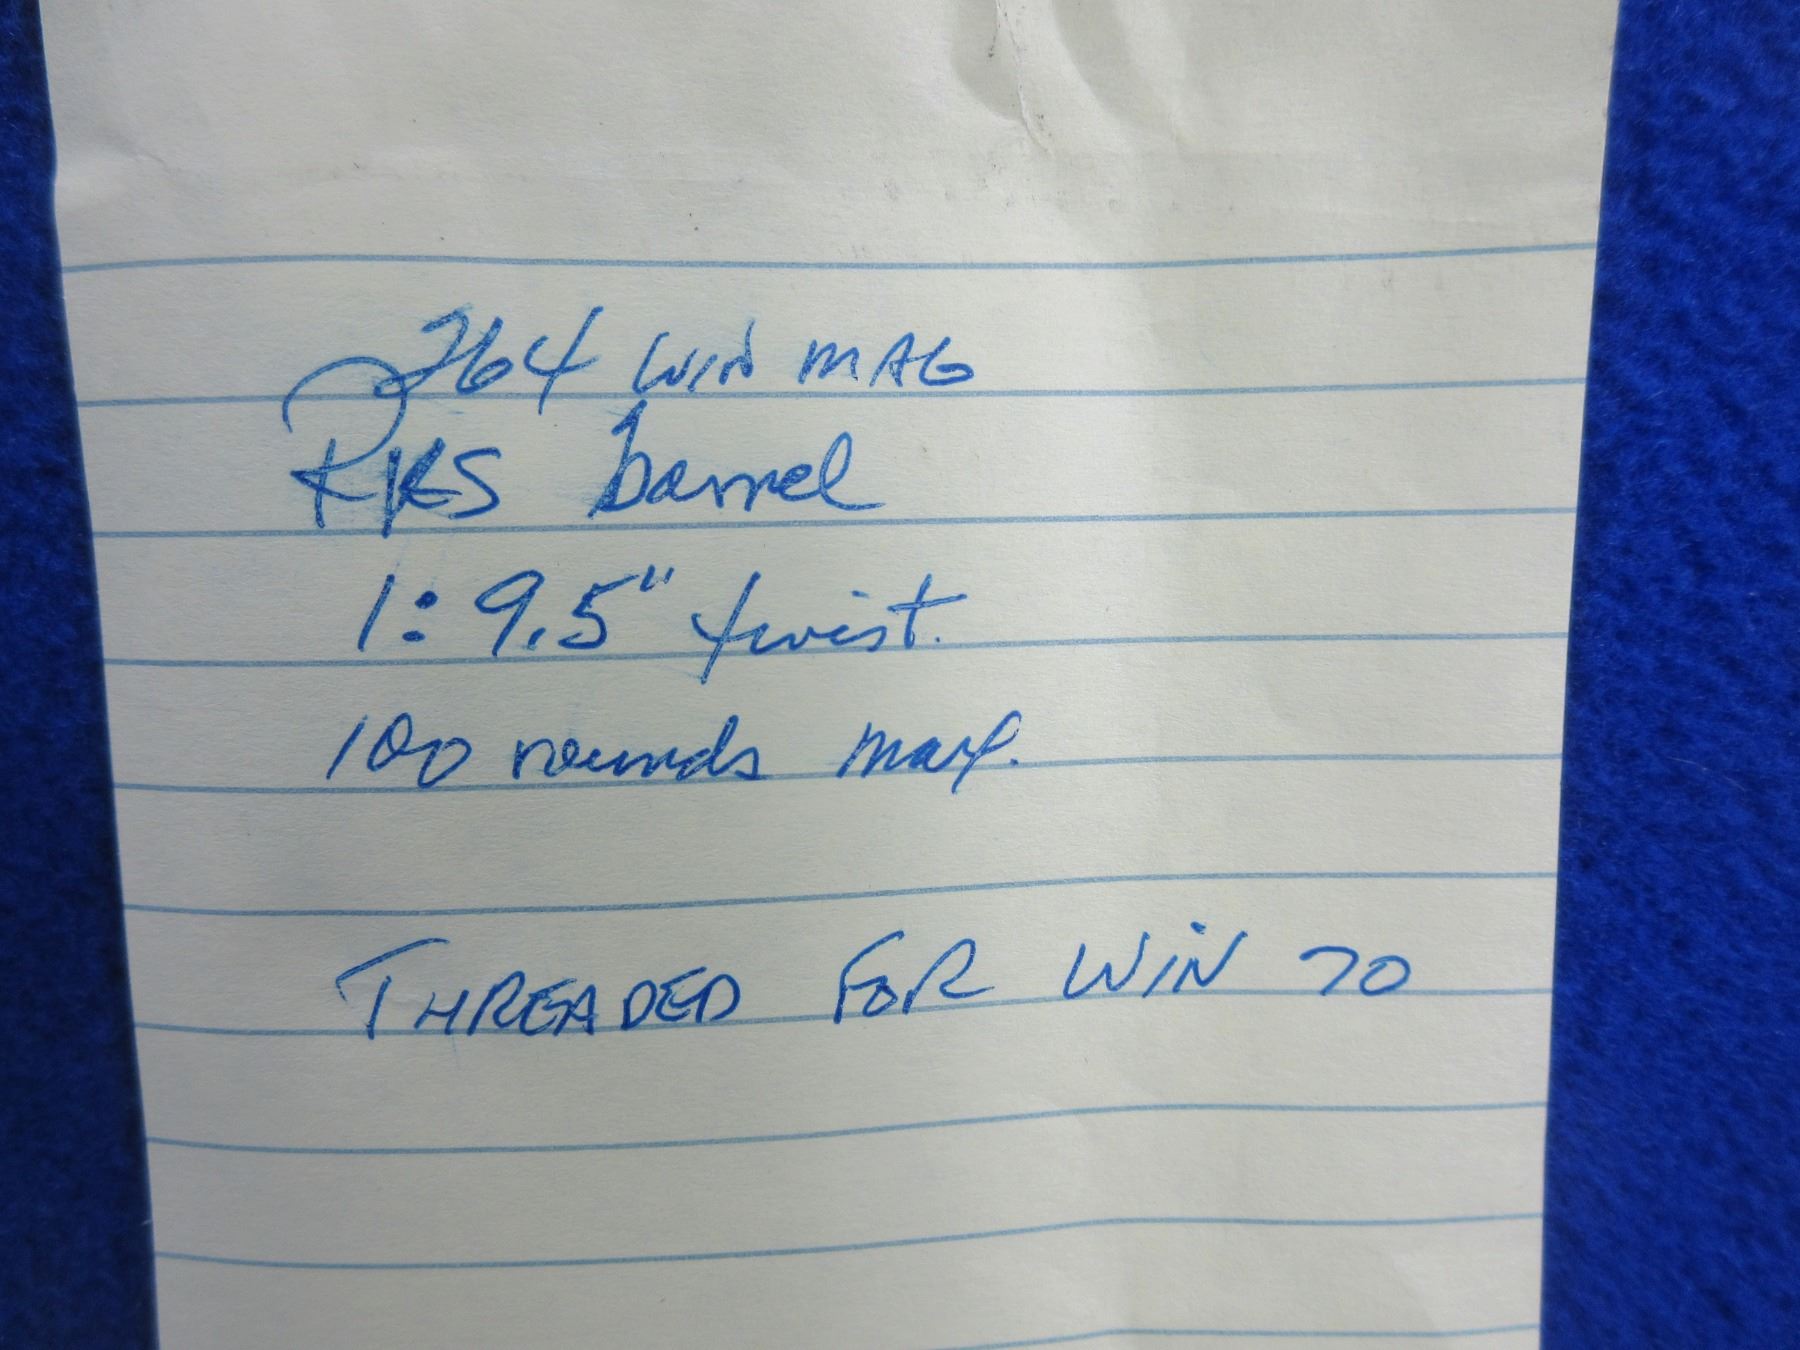 264 WIN MAG
RKS barrel
1:9.5" twist.
100 rounds max.
THREADED FOR WIN 70